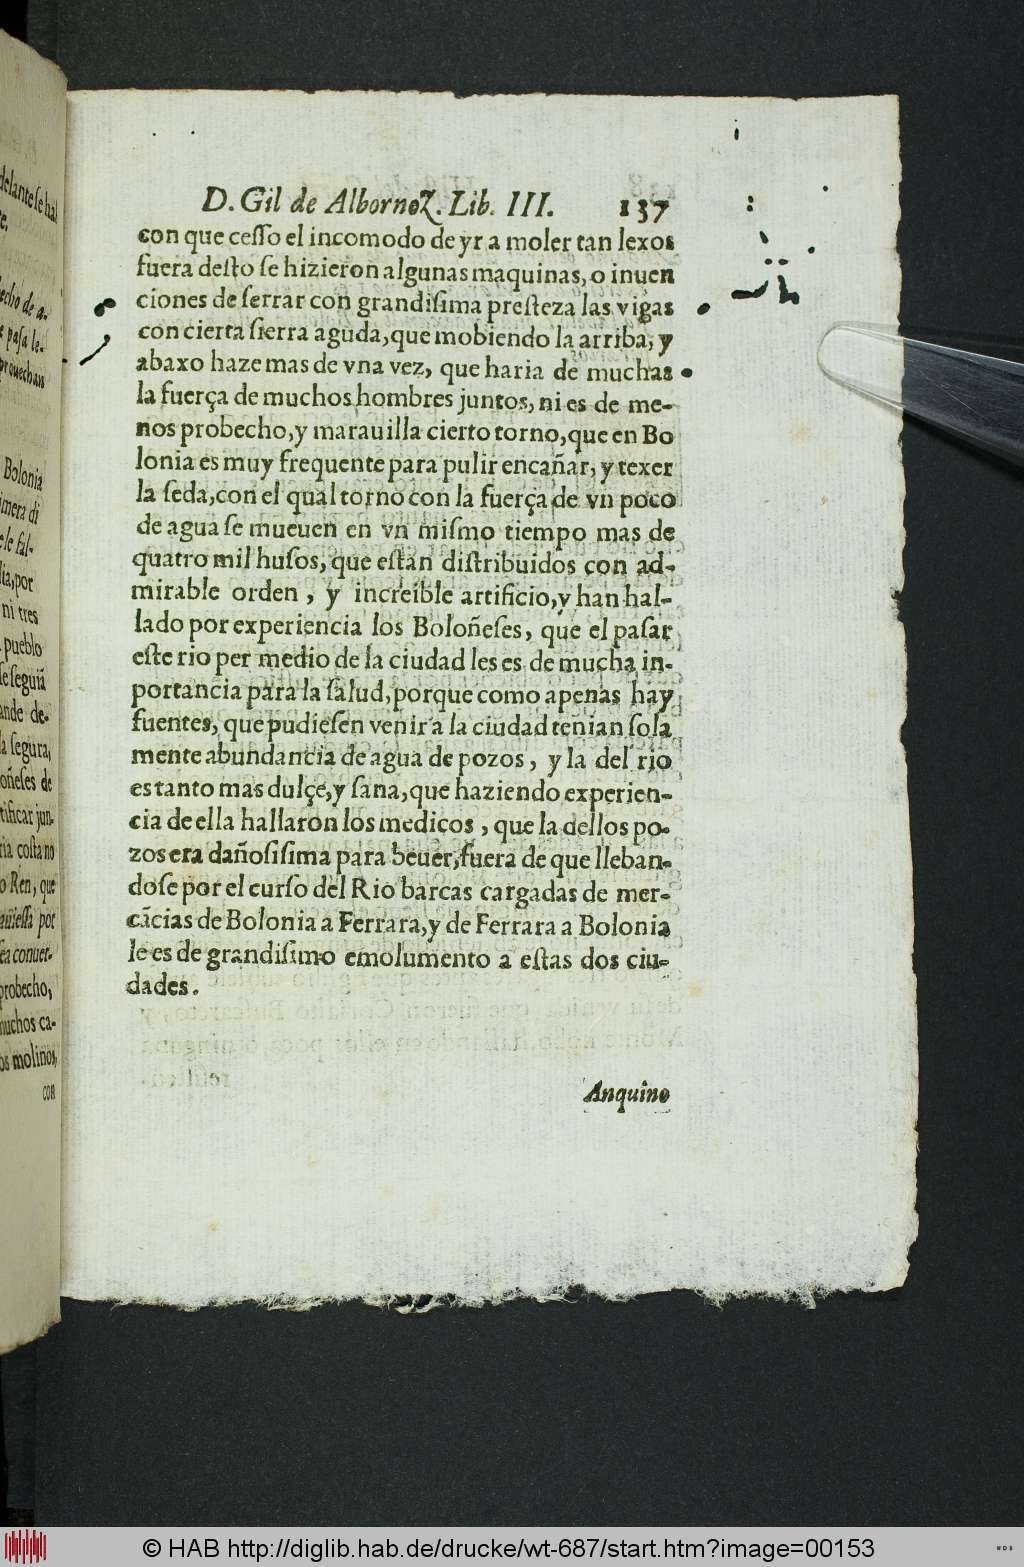 delante se hal
echo de a-
e pasa le-
prouechan
Bolonia
imera di
e le fal-
lia, por
ni tres
pueblo
se seguiã
ande de-
la segura,
oñeses de
tificar jun-
ria costa no
o Ren, que
auiessa por
sea conuer-
probecho,
muchos ca-
os molinos,
con
D. Gil de Albornoz. Lib. III. 137
con que cesso el incomodo de yr a moler tan lexos
fuera desto se hizieron algunas maquinas, o inuen
ciones de serrar con grandisima presteza las vigas
con cierta sierra aguda, que mobiendo la arriba, y
abaxo haze mas de vna vez, que haria de muchas
la fuerça de muchos hombres juntos, ni es de me-
nos probecho, y marauilla cierto torno, que en Bo
lonia es muy frequente para pulir encañar, y texer
la seda, con el qual torno con la fuerça de vn poco
de agua se mueuen en vn mismo tiempo mas de
quatro mil husos, que estan distribuidos con ad-
mirable orden, y increible artificio, y han hal-
lado por experiencia los Boloñeses, que el pasar
este rio per medio de la ciudad les es de mucha in-
portancia para la salud, porque como apenas hay
fuentes, que pudiesen venir a la ciudad tenian sola
mente abundancia de agua de pozos, y la del rio
es tanto mas dulçe, y sana, que haziendo experien-
cia de ella hallaron los medicos, que la dellos po-
zos era dañosisima para beuer, fuera de que lleban-
dose por el curso del Rio barcas cargadas de mer-
cãcias de Bolonia a Ferrara, y de Ferrara a Bolonia
le es de grandisimo emolumento a estas dos ciu-
dades.
Anquino
© HAB http://diglib.hab.de/drucke/wt-687/start.htm?image=00153